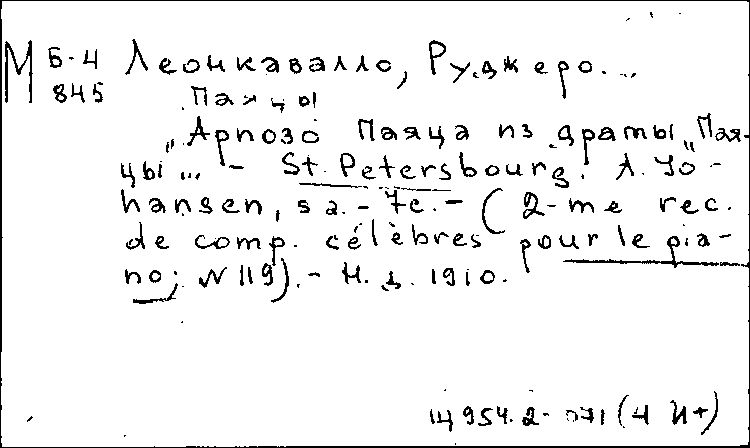 М Б-4 Леонкавалло, Руджеро...
845 Паяцы
„Арпозо Паяца из драмы „Пая-
цы"... - St. Petersbourg. A. Jo-
hansen, s a. - 7с. - (2-me rec.
de comp. célèbres pour le pia-
no; N 119). - Н. д. 1910.
14954.2-071 (4 И+)